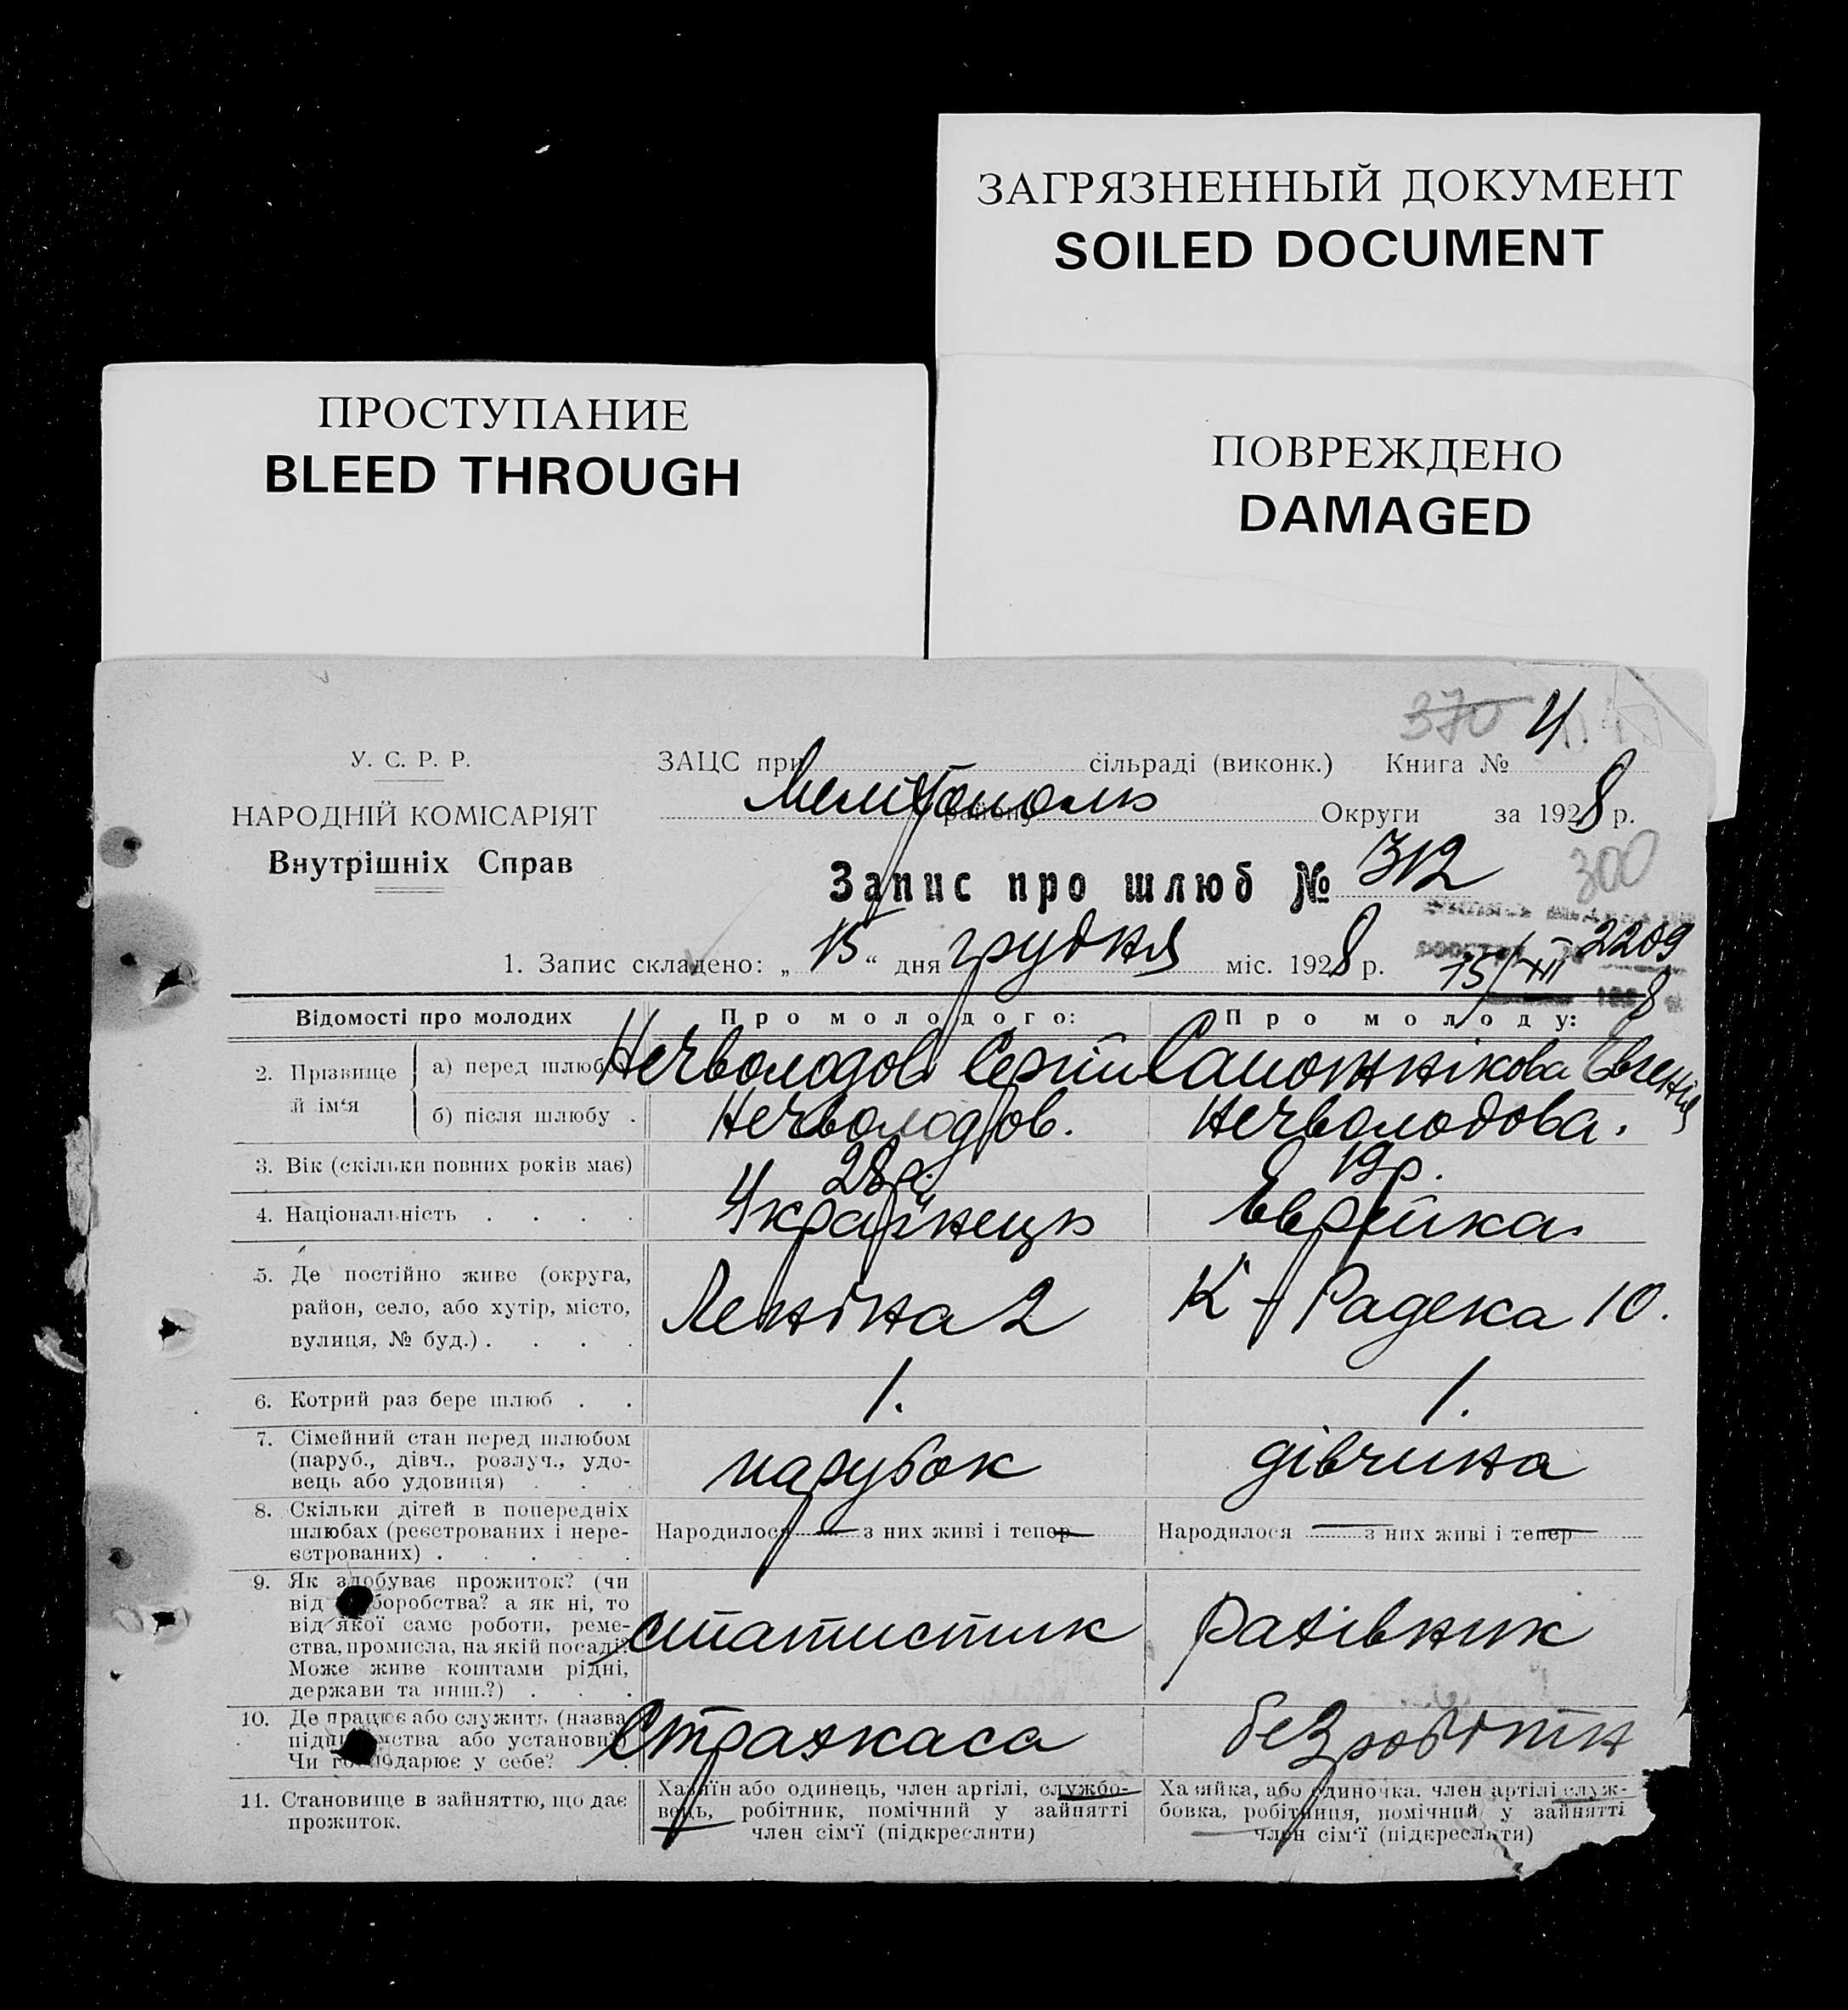 ЗАГРЯЗНЕННЫЙ ДОКУМЕНТ
SOILED DOCUMENT
ПРОСТУПАНИЕ
BLEED THROUGH
ПОВРЕЖДЕНО
DAMAGED
370 4
У. С. Р. Р.
НАРОДНІЙ КОМІСАРІЯТ
Внутрішніх Справ
ЗАЦС при сільраді (виконк.) Книга №
Мелітополь району Округи за 1928 р.
Запис про шлюб № 312
300
1. Запис складено: „15“ дня грудня міс. 1928 р.
2209
15/XII 8
Відомості про молодих Про молодого: Про молоду:
2. Прізвище й ім‘я
а) перед шлюбом Нечволодов Сергій Сапожнікова Євгенія
б) після шлюбу . Нечволодов. Нечволодова.
3. Вік (скільки повних років має) 28 р. 19 р.
4. Національність . . . . Українець Еврейка
5. Де постійно живе (округа,
район, село, або хутір, місто,
вулиця, № буд.) . . . .
Леніна 2 К - Радека 10.
6. Котрий раз бере шлюб . . 1. 1.
7. Сімейний стан перед шлюбом
(паруб., дівч., розлуч., удо-
вець або удовиця) . . .
парубок дівчина
8. Скільки дітей в попередніх
шлюбах (реєстрованих і нере-
єстрованих) . . . . .
Народилося — з них живі і тепер — Народилося — з них живі і тепер —
9. Як здобуває прожиток? (чи
від хліборобства? а як ні, то
від якої саме роботи, реме-
ства, промисла, на якій посаді?
Може живе коштами рідні,
держави та инш.?) . . .
статистик рахівник
10. Де працює або служить (назва
підприємства або установи)?
Чи господарює у себе? . .
Страхкаса безробітн
11. Становище в зайняттю, що дає
прожиток.
Хазяїн або одинець, член артілі, службо-
вець, робітник, помічний у зайнятті
член сім‘ї (підкреслити)
Хазяйка, або одиночка, член артілі служ-
бовка, робітниця, помічний у зайнятті
член сім‘ї (підкреслити)